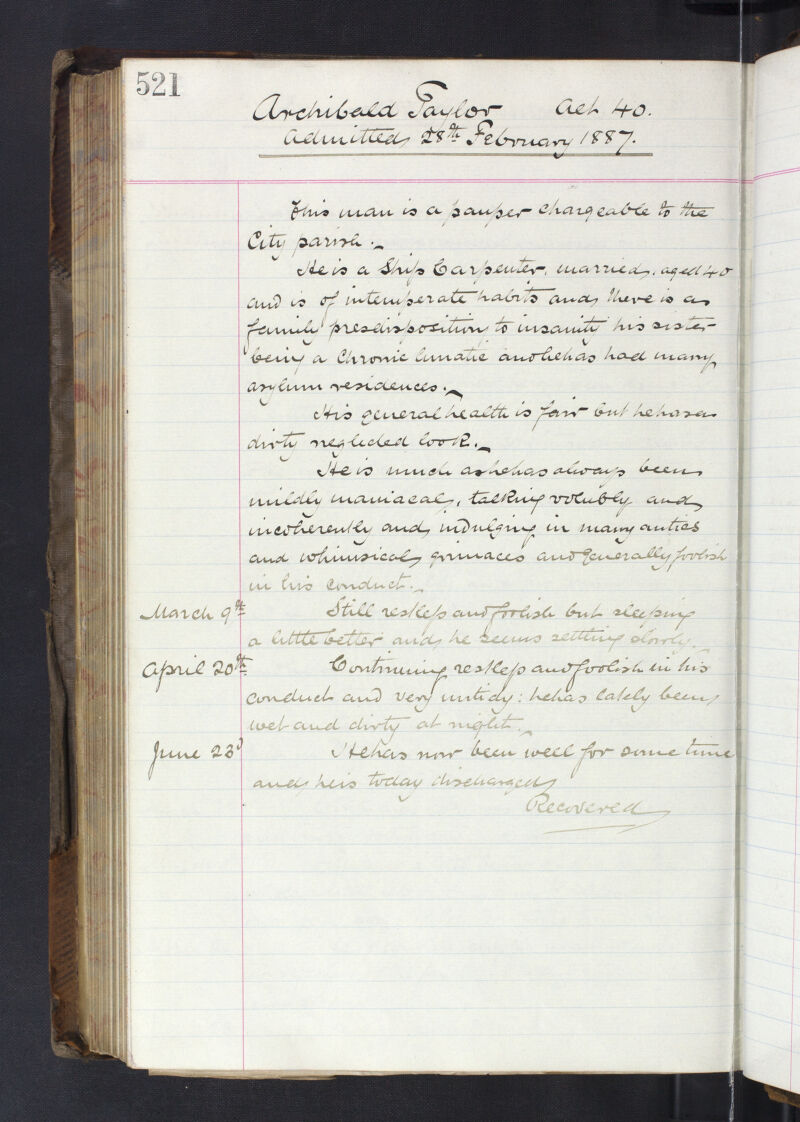 521
Archibald Taylor Aet 40.
Admitted 28th February 1887.
This man is a pauper chargeable to the
City parish.
He is a Ship Carpenter, married, aged 40
and is of intemperate habits and there is a
family predisposition to insanity his sister
being a Chronic lunatic and he has had many
asylum residences.
His general health is fair but he has a
dirty neglected look.
He is much as he has always been
mildly maniacal, talking volubly and
incoherently and indulging in many antics
and whimsical grimaces and generally foolish
in his conduct.
March 9th Still restless and foolish but sleeping
a little better and he seems settling slowly.
April 20th Continuing restless and foolish in his
conduct and very untidy: he has lately been
wet and dirty at night.
June 23d He has now been well for some time
and he is today discharged
Recovered